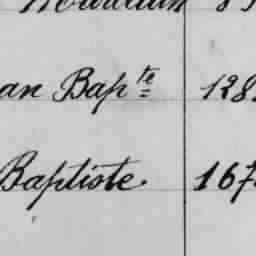 an Bap^te 128
Baptiste. 167